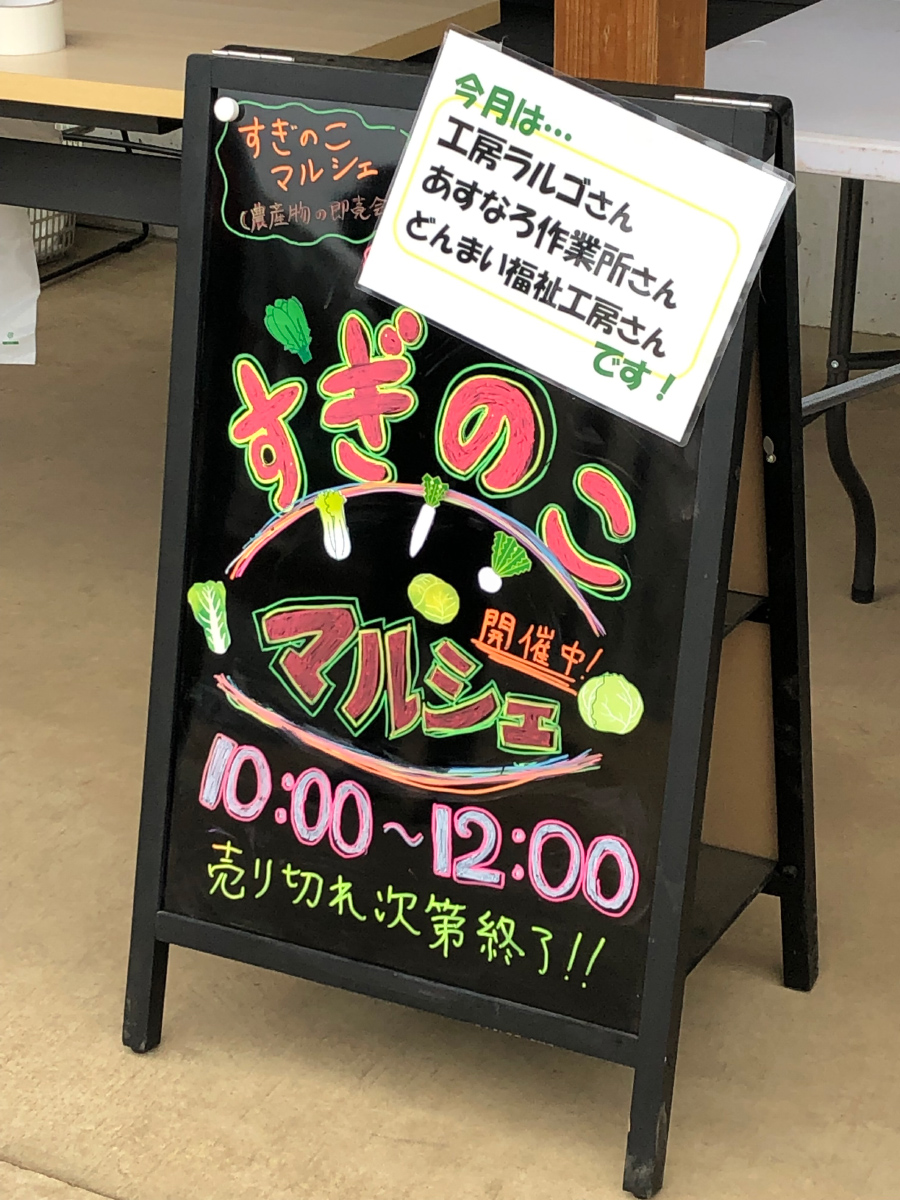 すぎのこ
マルシェ
(農産物の即売会
今月は…
工房ラルゴさん
あすなろ作業所さん
どんまい福祉工房さん
です！
すぎのこ
マルシェ
開催中!
10:00~12:00
売り切れ次第終了!!